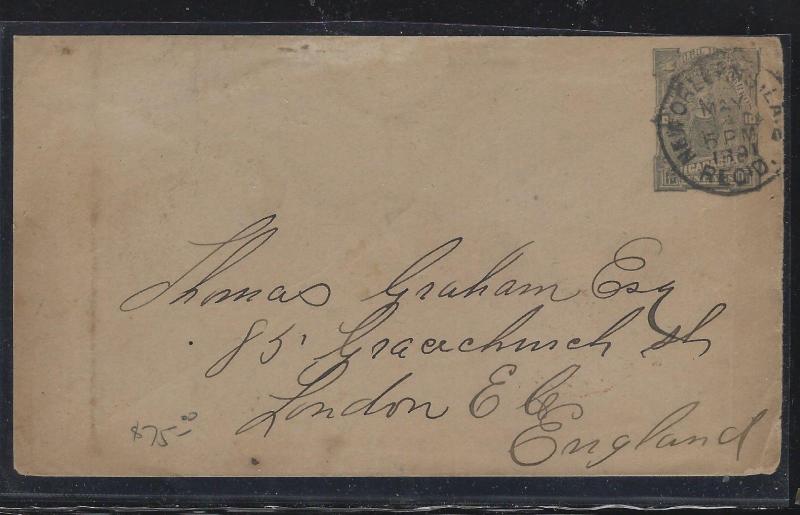 NEW ORLEANS, LA.
MAY
6 PM
1891
REC'D.
Thomas Graham Esq
85 Gracechurch St
London E C
England
$75.00